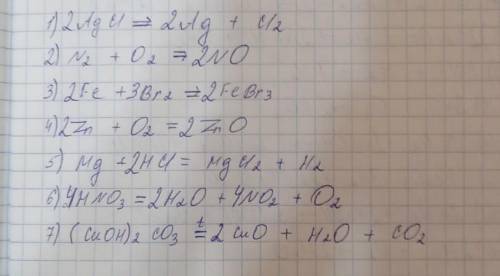 1) 2AgCl ⇒ 2Ag + Cl2
2) N2 + O2 ⇒ 2NO
3) 2Fe + 3Br2 ⇒ 2FeBr3
4) 2Zn + O2 = 2ZnO
5) Mg + 2HCl = MgCl2 + H2
6) 4HNO3 = 2H2O + 4NO2 + O2
7) (CuOH)2 CO3 t= 2CuO + H2O + CO2